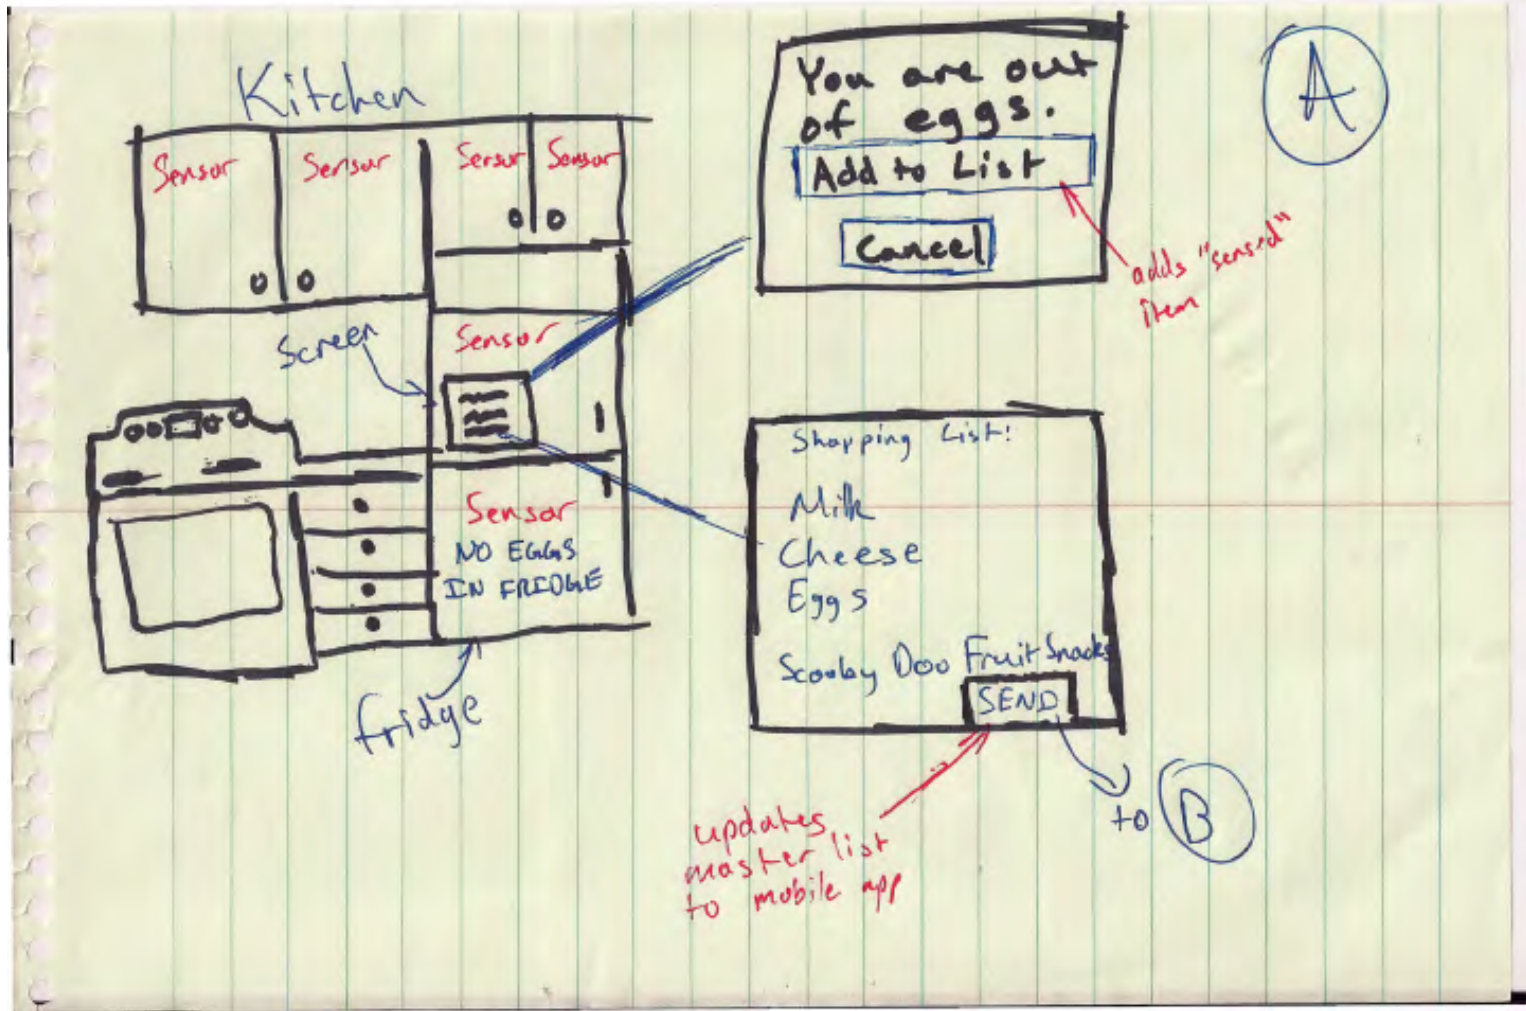 Kitchen
Sensor
Sensor
Sensor
Sensor
Screen
Sensor
Sensor
NO EGGS
IN FRIDGE
fridge
You are out
of eggs.
Add to List
Cancel
adds "sensed"
item
A
Shopping List:
Milk
Cheese
Eggs
Scooby Doo Fruit Snacks
SEND
updates
master list
to mobile app
to B